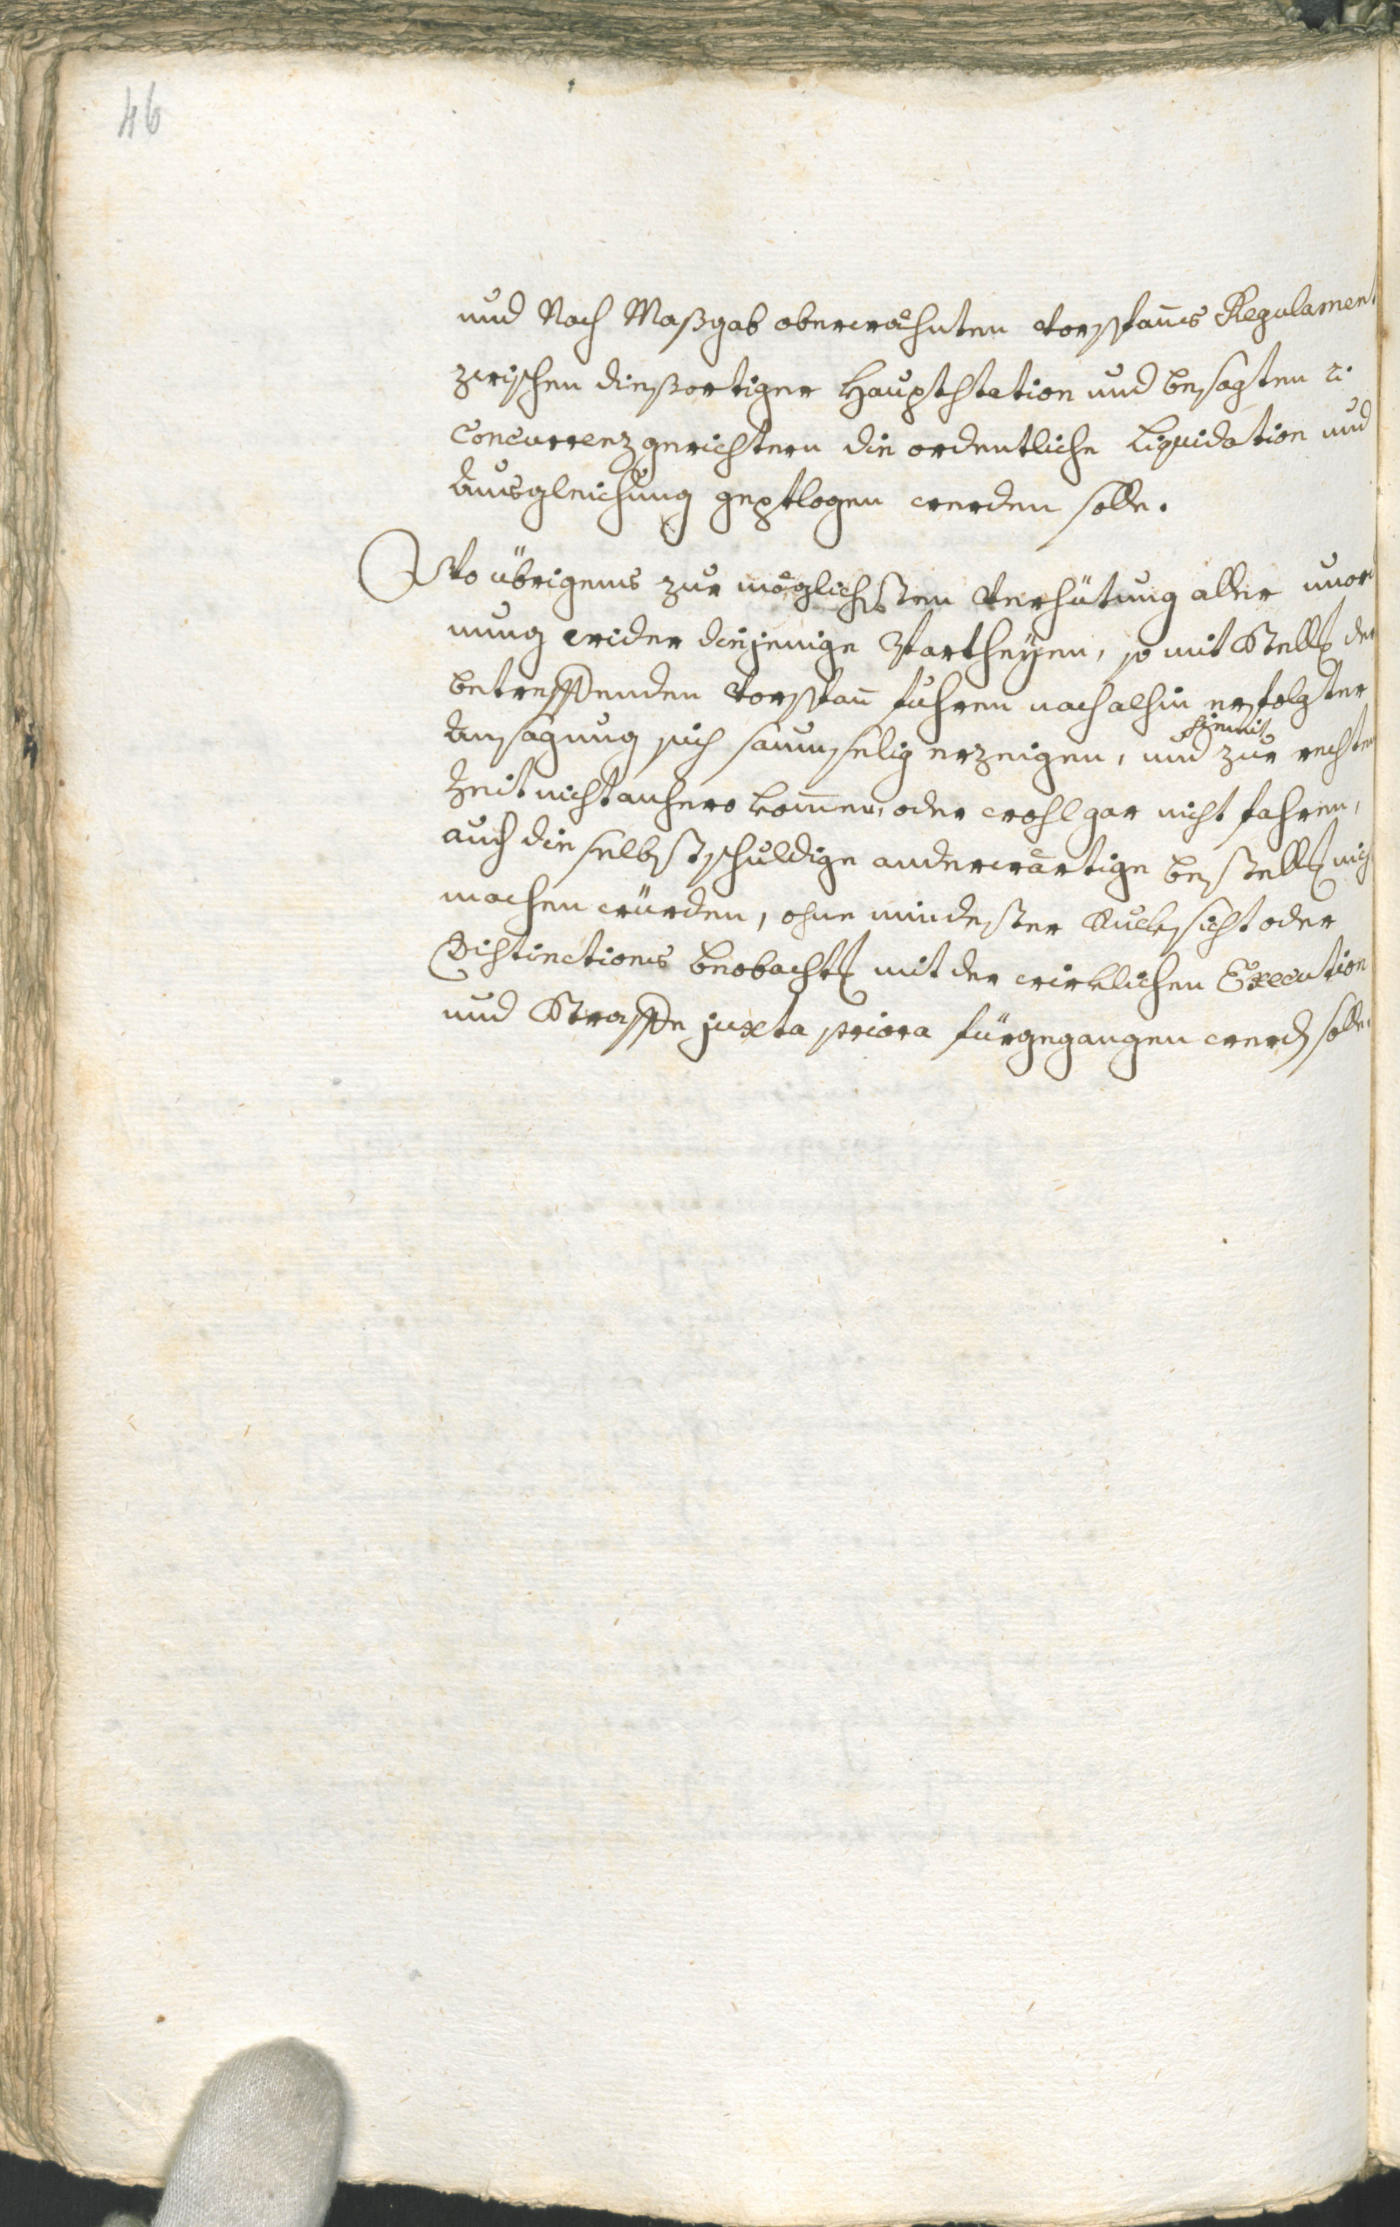 46
und Nach Maßgab oberwähnten Vorspañs Regulament
zwischen dießortiger Hauptstation und besagten 2.
Concurrenzgerichtern die ordentliche Liquidation und
Ausgleichung gepflogen werden solle.
Wo übrigens zur möglichsten Verhütung aller unord
nung wider diejenige Partheyen, so mit Stell⟨ung⟩ der
betreffenden Vorspañ fuhren nach alhin erfolgter
Ansagung sich saumselig erzeigen, und zur rechten
hiemit
Zeit nicht anhero kom̄en, oder wohl gar nicht fahren,
auch die selbst schuldige anderwärtige bestell⟨ung⟩ nich
machen würden, ohne mindester Rucksicht oder
Distinctions beobacht⟨ung⟩ mit der wirklichen Execution
und Straffe juxta priora fürgegangen werd⟨en⟩ solle.